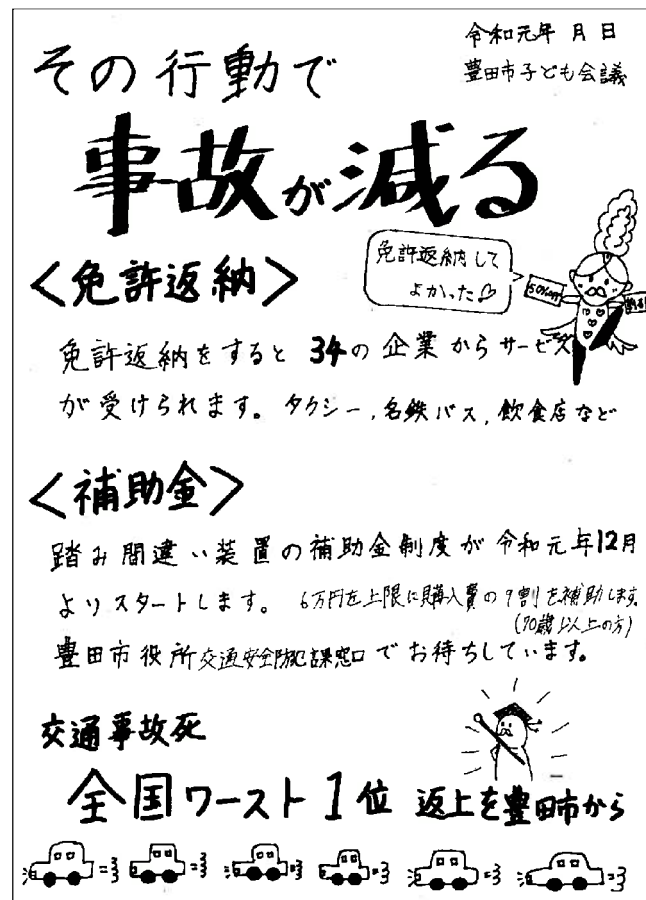 令和元年 月 日
豊田市子ども会議
その行動で
事故が減る
免許返納して
よかった♡
50%off
<免許返納>
免許返納をすると34の企業からサービス
が受けられます。タクシー,名鉄バス,飲食店など
<補助金>
踏み間違い装置の補助金制度が令和元年12月
よりスタートします。6万円を上限に購入費の9割を補助します。
(70歳以上の方)
豊田市役所交通安全防犯課窓口でお待ちしています。
交通事故死
全国ワースト1位 返上を豊田市から